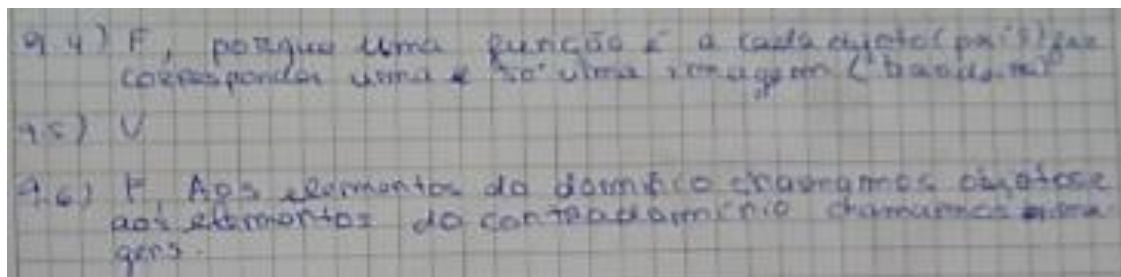 9.4) F, porque uma função é a cada objeto (país) faz
corresponder uma e só uma imagem (bandeira)
9.5) V
9.6) F, Aos elementos do domínio chamamos objetos e
aos elementos do contradomínio chamamos ima-
gens.